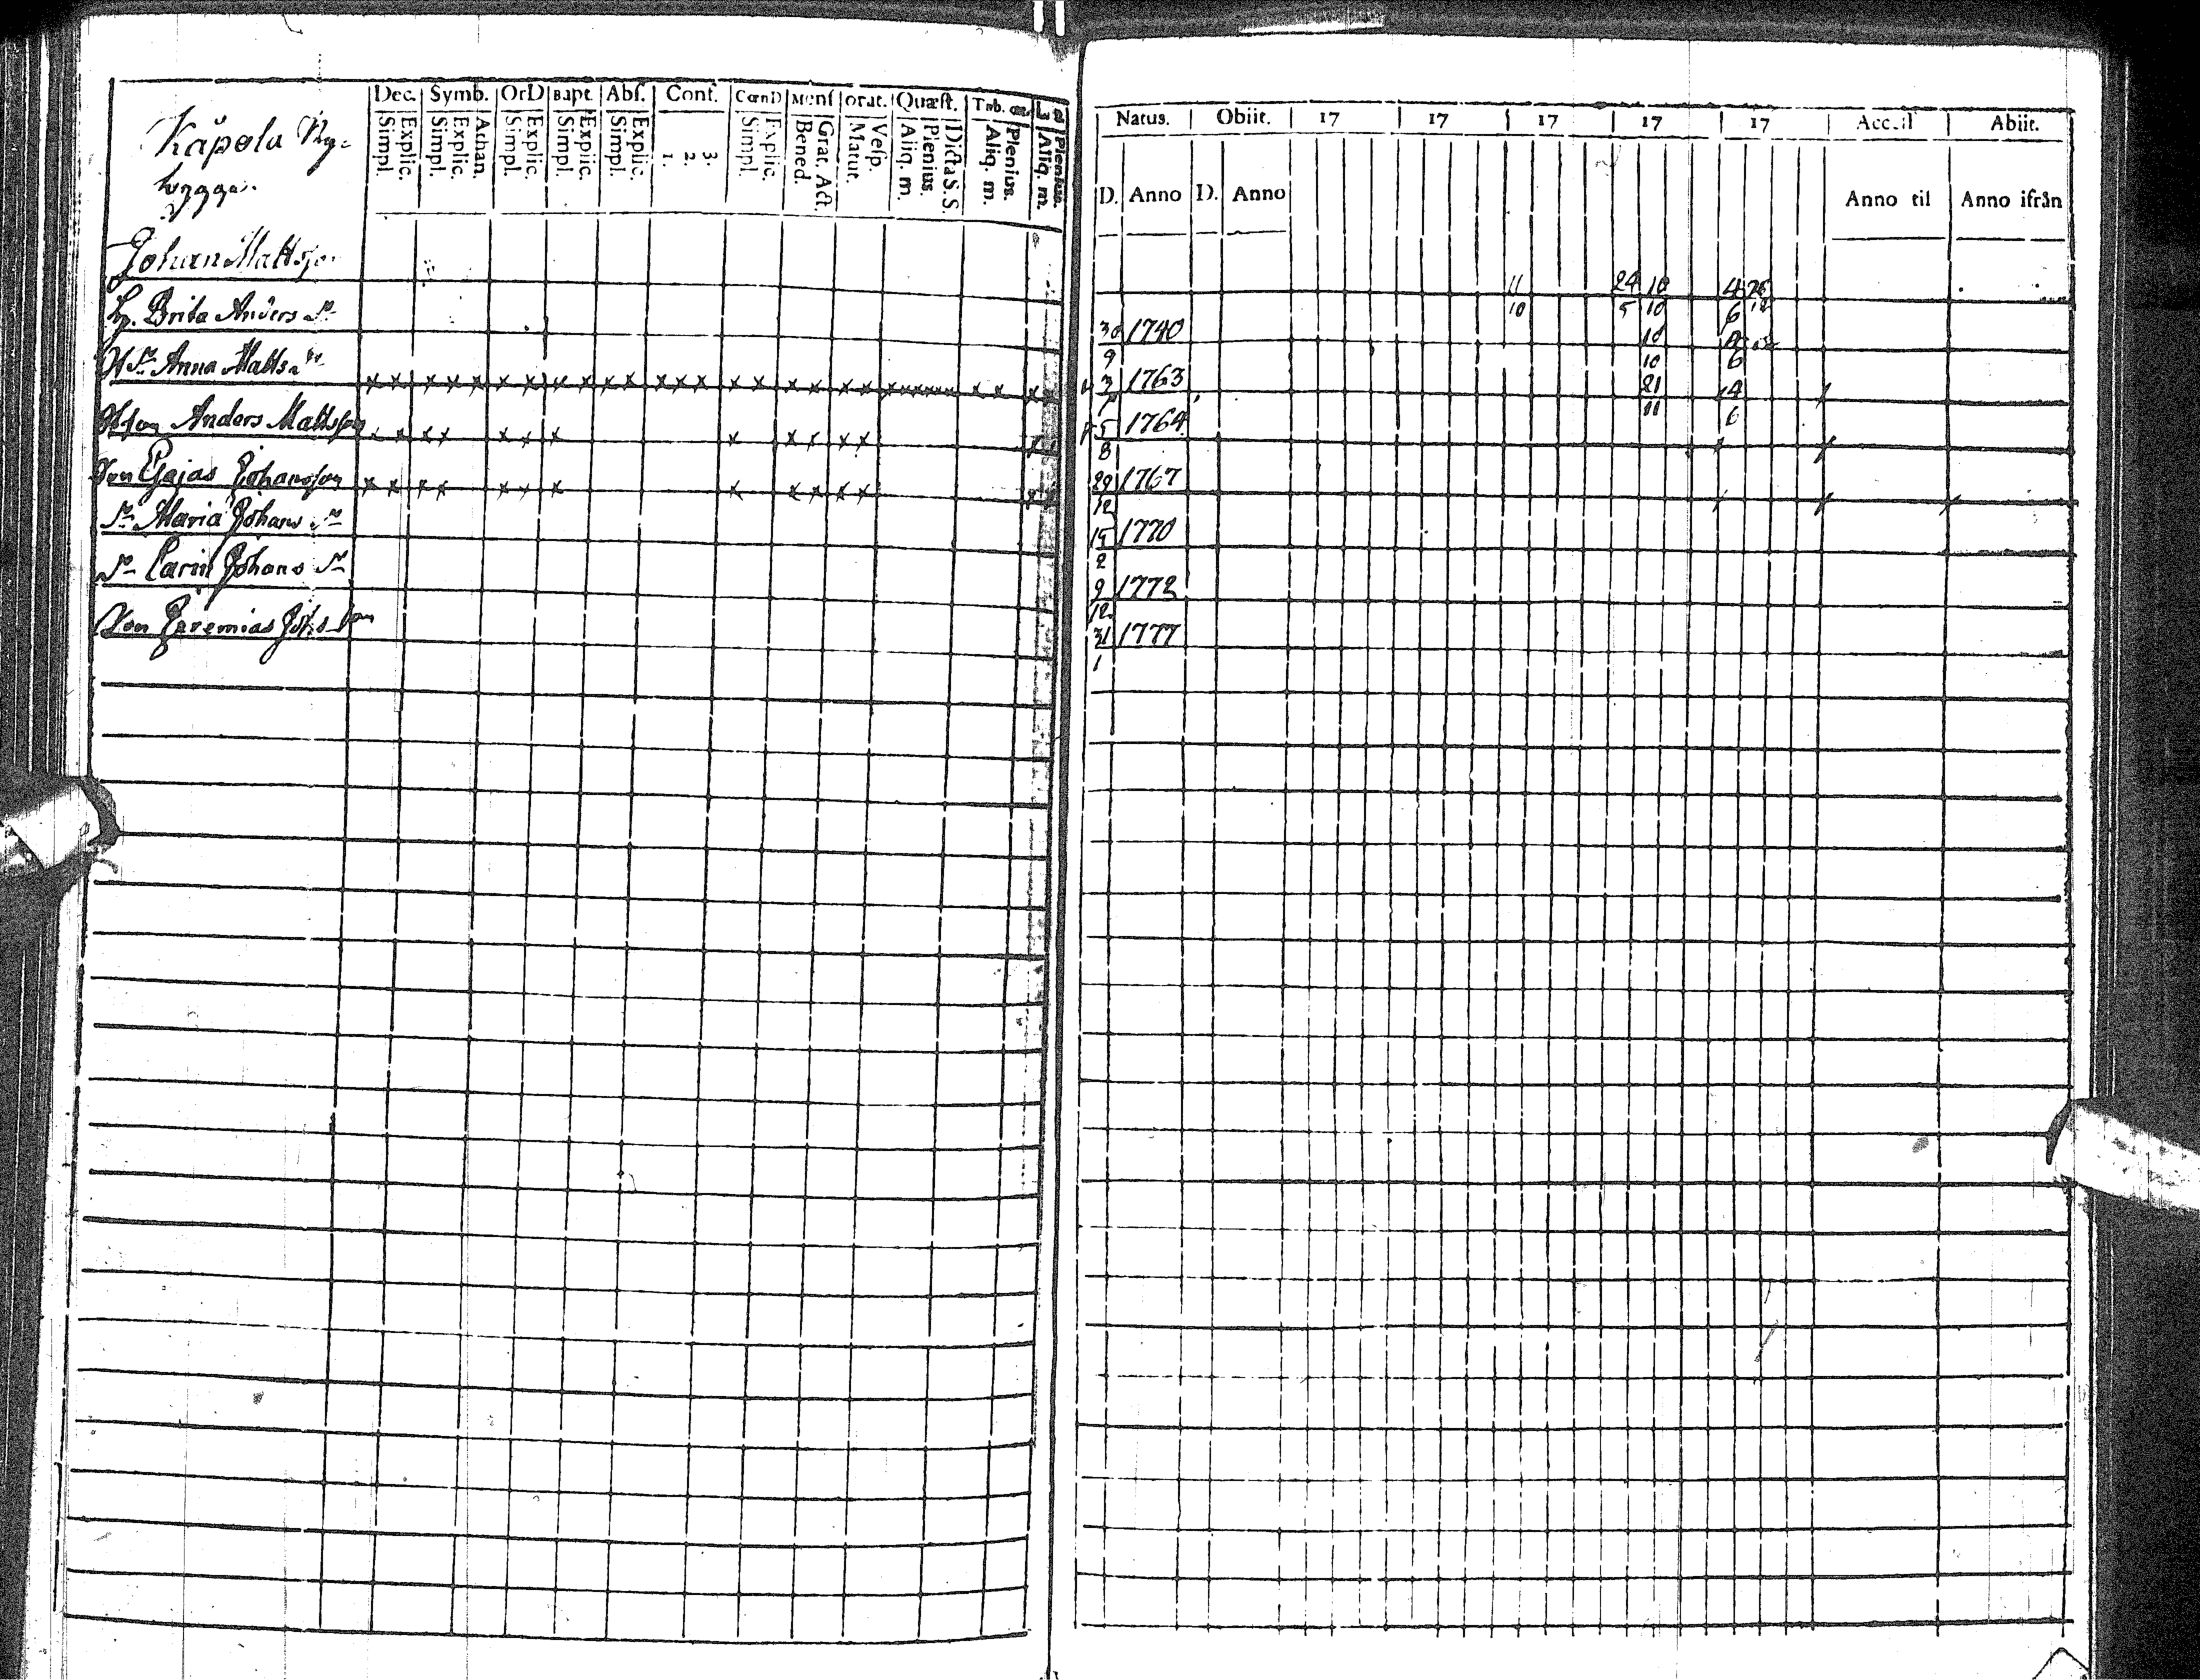 Käpola Ny=
bygge.
Dec. Symb. OrD Bapt. Abs. Conf. CœnD Mens orat. Quæst. Tab.
Simpl. Explic. Simpl. Explic. Athan. Simpl. Explic. Simpl. Explic. Simpl. Explic. 1. 2. 3. Simpl. Explic. Bened. Grat. Act. Matut. Vesp. Aliq. m. Plenius. Dicta S. S. Aliq. m. Plenius. Aliq. m. Plenius.
Natus. Obiit. 17 17 17 17 17 Abiit.
D. Anno D. Anno Anno til Anno ifrån
Johan Mattsson
11 24 10 4 26
10 5 10 6 12
H. Brita Anders dr 30 1740 10
9 10 6
dr Anna Matts dr x x x x x x x x x x x x x x x x x x x x x x x x x x 3 1763 21 4
11 6
son Anders Mattsson x x x x x x x x x x x x 5 1764
8
Son Esajas Johansson x x x x x x x x x x x x 29 1767
12
dr Maria Johans dr 15 1770
2
dr Carin Johans dr 9 1772
12
Son Jeremias Johs son 31 1777
1